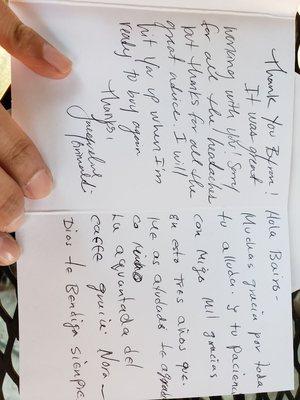 Thank You Byron!
It was great
working with you. Sorry
for all the headaches
but thanks for all the
great advice. I will
hit you up when I'm
ready to buy again
Thanks,
Jacqueline
Hola Bairo-
Muchas gracias por toda
tu alluda. y tu pacienc
con migo mil gracias
en esto tres años que
me as ayudado te agrade
co
La aguantada del
caffe gracias Nora-
Dios te Bendiga siempre